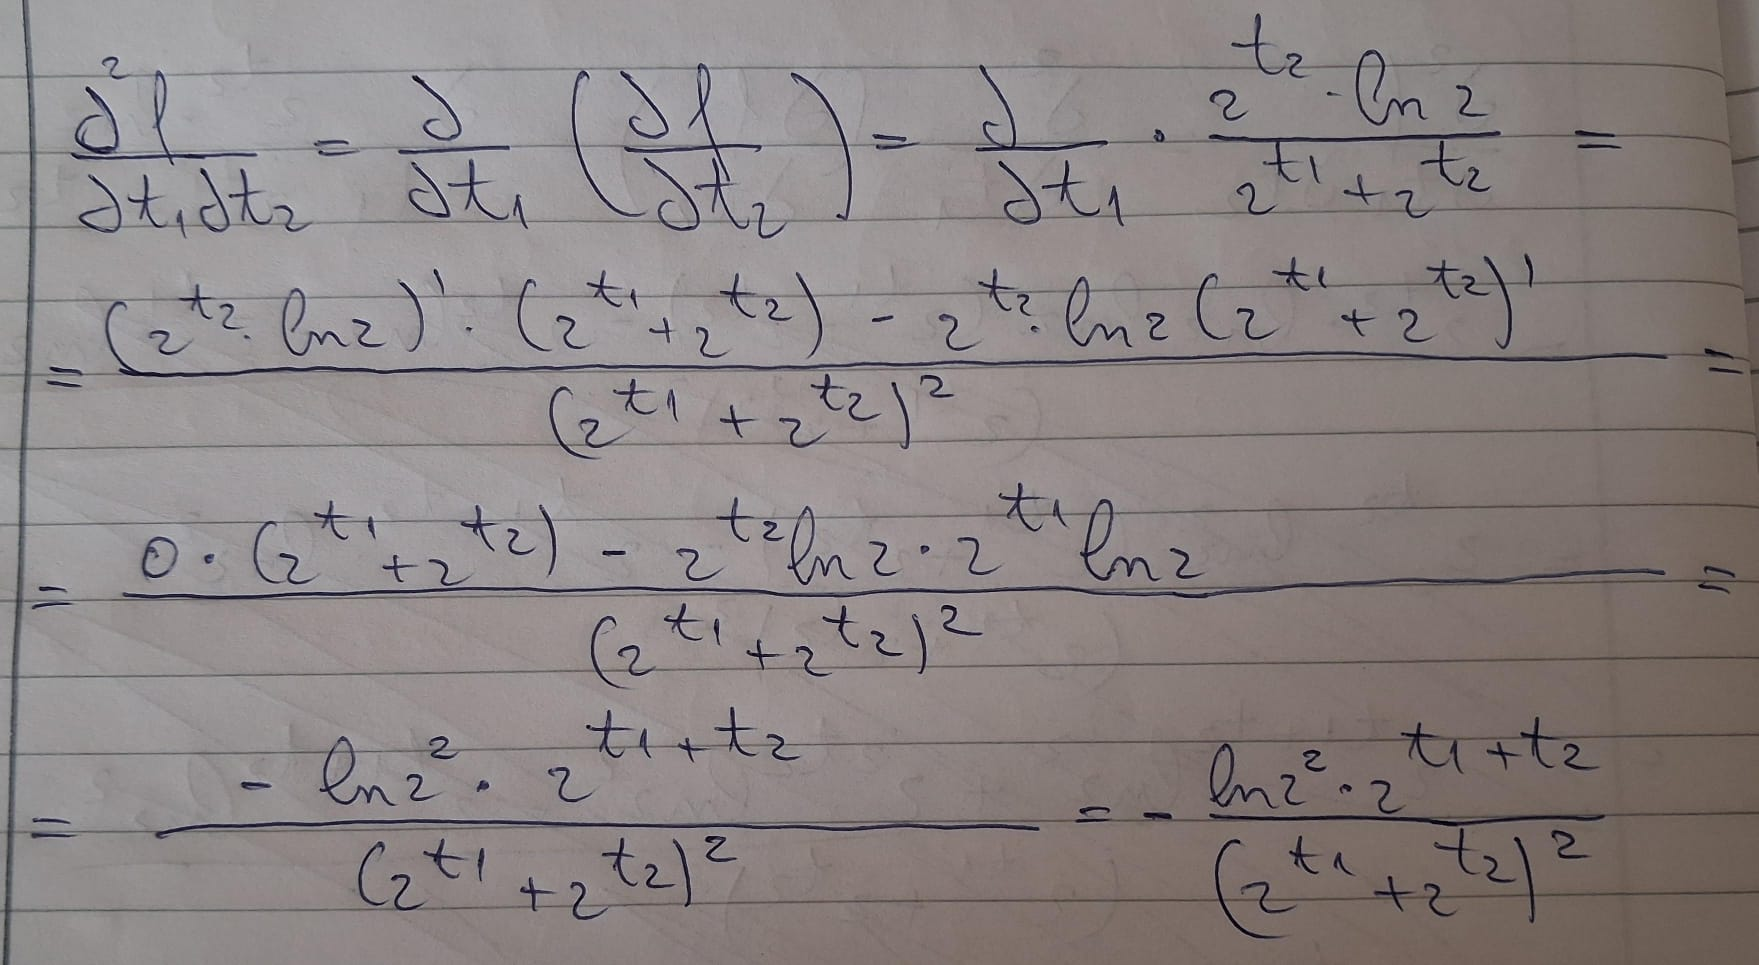 ∂²f/∂t₁∂t₂ = ∂/∂t₁ (∂f/∂t₂) = ∂/∂t₁ · (2^t₂ · ln 2)/(2^t₁ + 2^t₂) =
= ((2^t₂ · ln 2)' · (2^t₁ + 2^t₂) - 2^t₂ · ln 2 (2^t₁ + 2^t₂)')/(2^t₁ + 2^t₂)² =
= (0 · (2^t₁ + 2^t₂) - 2^t₂ ln 2 · 2^t₁ ln 2)/(2^t₁ + 2^t₂)² =
= (- ln 2² · 2^(t₁ + t₂))/(2^t₁ + 2^t₂)² = - (ln 2² · 2^(t₁ + t₂))/(2^t₁ + 2^t₂)²